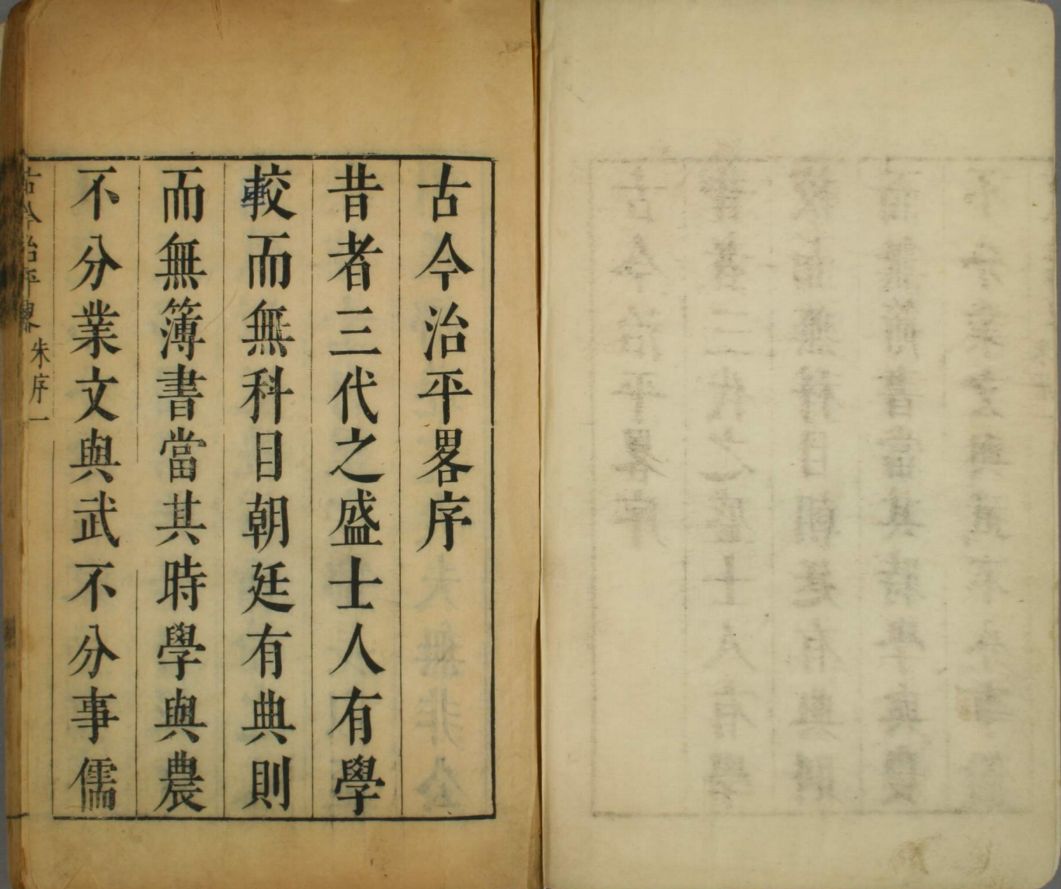 古今治平畧序
昔者三代之盛士人有學
較而無科目朝廷有典則
而無簿書當其時學與農
不分業文與武不分事儒
古今治平畧 朱序一